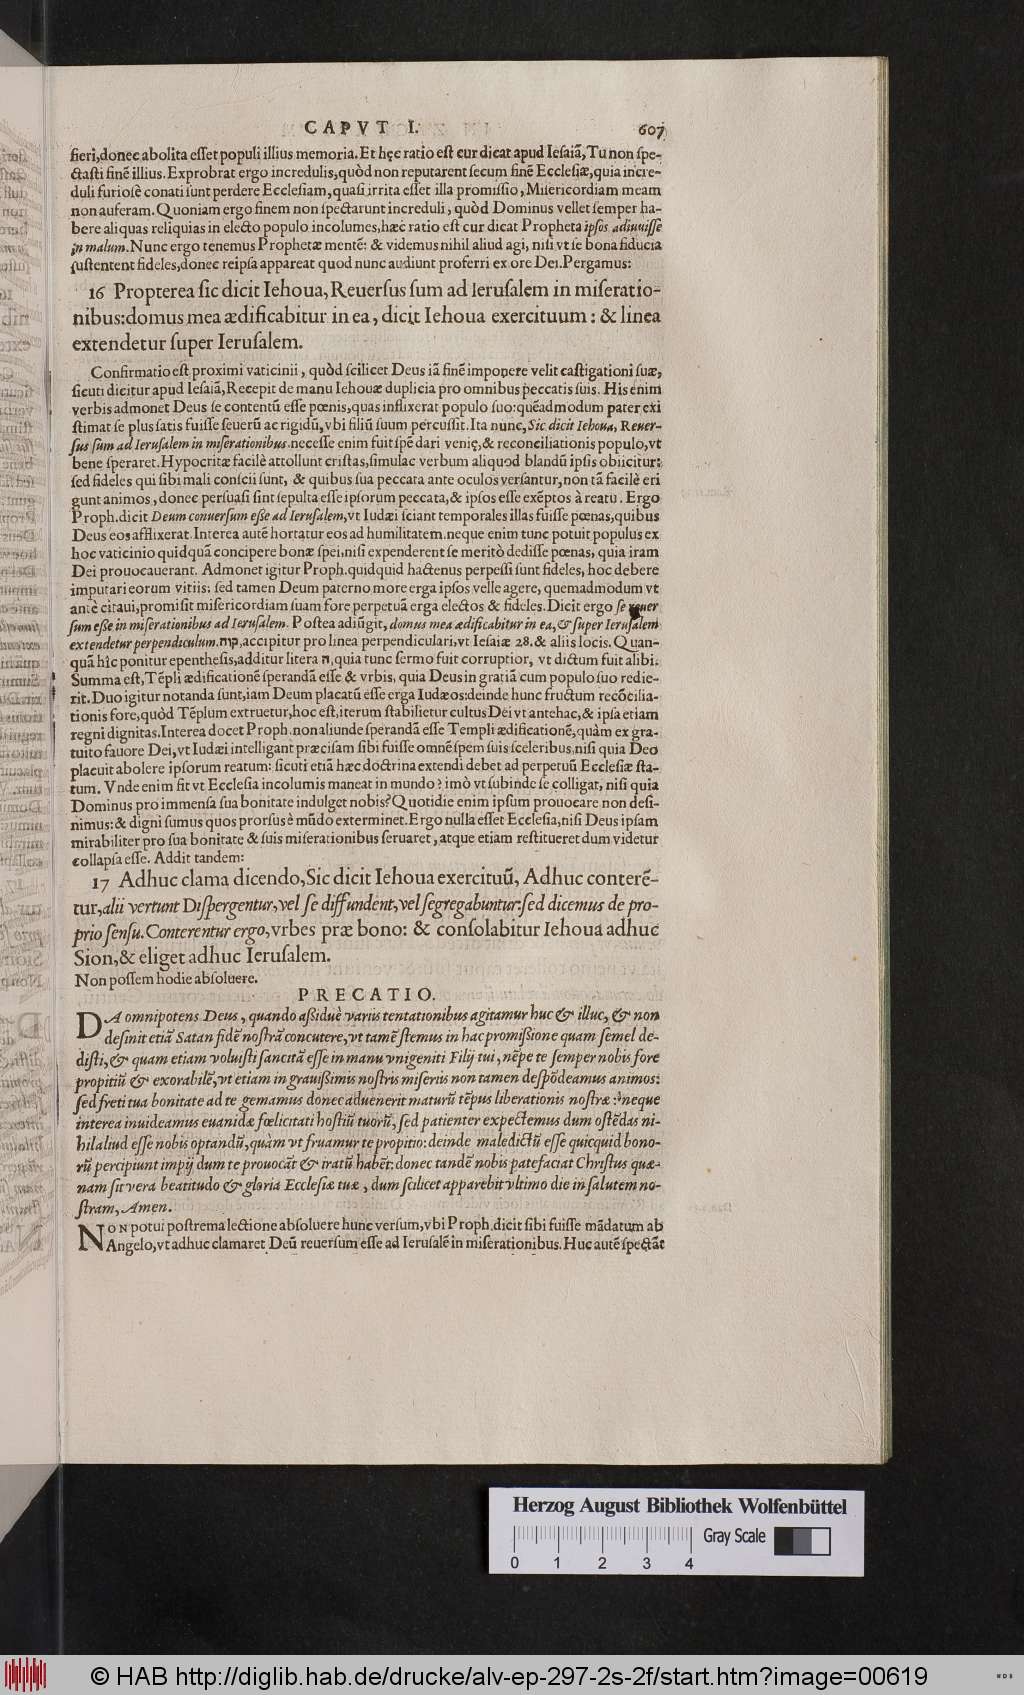 CAPVT I. 607
fieri,donec abolita eſſet populi illius memoria. Et hęc ratio eſt cur dicat apud Ieſaiã, Tu non ſpe-
ctaſti finẽ illius. Exprobrat ergo incredulis, quòd non reputarent ſecum finẽ Eccleſiæ, quia incre-
duli furioſè conati ſunt perdere Eccleſiam, quaſi irrita eſſet illa promiſſio, Miſericordiam meam
non auferam. Quoniam ergo finem non ſpectarunt increduli, quòd Dominus vellet ſemper ha-
bere aliquas reliquias in electo populo incolumes, hæc ratio eſt cur dicat Propheta ipſos adiuuiſſe
in malum. Nunc ergo tenemus Prophetæ mentẽ: & videmus nihil aliud agi, niſi vt ſe bona fiducia
ſuſtentent fideles, donec reipſa appareat quod nunc audiunt proferri ex ore Dei. Pergamus:
16 Propterea ſic dicit Iehoua, Reuerſus ſum ad Ieruſalem in miſeratio-
nibus: domus mea ædificabitur in ea, dicit Iehoua exercituum : & linea
extendetur ſuper Ieruſalem.
Confirmatio eſt proximi vaticinii, quòd ſcilicet Deus iã finẽ imponere velit caſtigationi ſuæ,
ſicuti dicitur apud Ieſaiã, Recepit de manu Iehouæ duplicia pro omnibus peccatis ſuis. His enim
verbis admonet Deus ſe contentũ eſſe pœnis, quas inflixerat populo ſuo: quẽadmodum pater exi
ſtimat ſe plus ſatis fuiſſe ſeuerũ ac rigidũ, vbi filiũ ſuum percuſſit. Ita nunc, Sic dicit Iehoua, Reuer-
ſus ſum ad Ieruſalem in miſerationibus. neceſſe enim fuit ſpẽ dari venię, & reconciliationis populo, vt
bene ſperaret. Hypocritæ facilè attollunt criſtas, ſimulac verbum aliquod blandũ ipſis obiicitur:
ſed fideles qui ſibi mali conſcii ſunt, & quibus ſua peccata ante oculos verſantur, non tã facilè eri
gunt animos, donec perſuaſi ſint ſepulta eſſe ipſorum peccata, & ipſos eſſe exẽptos à reatu. Ergo
Proph. dicit Deum conuerſum eſſe ad Ieruſalem, vt Iudæi ſciant temporales illas fuiſſe pœnas, quibus
Deus eos afflixerat. Interea autẽ hortatur eos ad humilitatem. neque enim tunc potuit populus ex
hoc vaticinio quidquã concipere bonæ ſpei, niſi expenderent ſe meritò dediſſe pœnas, quia iram
Dei prouocauerant. Admonet igitur Proph. quidquid hactenus perpeſſi ſunt fideles, hoc debere
imputari eorum vitiis: ſed tamen Deum paterno more erga ipſos velle agere, quemadmodum vt
antè citaui, promiſit miſericordiam ſuam fore perpetuã erga electos & fideles. Dicit ergo ſe reuer
ſum eſſe in miſerationibus ad Ieruſalem. Poſtea adiũgit, domus mea ædificabitur in ea, & ſuper Ieruſalem
extendetur perpendiculum. קוה, accipitur pro linea perpendiculari, vt Ieſaiæ 28. & aliis locis. Quan-
quã hîc ponitur epentheſis, additur litera ה, quia tunc ſermo fuit corruptior, vt dictum fuit alibi.
Summa eſt, Tẽpli ædificationẽ ſperandã eſſe & vrbis, quia Deus in gratiã cum populo ſuo redie-
rit. Duo igitur notanda ſunt, iam Deum placatũ eſſe erga Iudæos: deinde hunc fructum recõcilia-
tionis fore, quòd Tẽplum extruetur, hoc eſt, iterum ſtabilietur cultus Dei vt antehac, & ipſa etiam
regni dignitas. Interea docet Proph. non aliunde ſperandã eſſe Templi ædificationẽ, quàm ex gra-
tuito fauore Dei, vt Iudæi intelligant præciſam ſibi fuiſſe omnẽ ſpem ſuis ſceleribus, niſi quia Deo
placuit abolere ipſorum reatum: ſicuti etiã hæc doctrina extendi debet ad perpetuũ Eccleſiæ ſta-
tum. Vnde enim fit vt Eccleſia incolumis maneat in mundo? imò vt ſubinde ſe colligat, niſi quia
Dominus pro immenſa ſua bonitate indulget nobis? Quotidie enim ipſum prouocare non deſi-
nimus: & digni ſumus quos prorſus è mũdo exterminet. Ergo nulla eſſet Eccleſia, niſi Deus ipſam
mirabiliter pro ſua bonitate & ſuis miſerationibus ſeruaret, atque etiam reſtitueret dum videtur
collapſa eſſe. Addit tandem:
17 Adhuc clama dicendo, Sic dicit Iehoua exercituũ, Adhuc conterẽ-
tur, alii vertunt Diſpergentur, vel ſe diffundent, vel ſegregabuntur: ſed dicemus de pro-
prio ſenſu. Conterentur ergo, vrbes præ bono: & conſolabitur Iehoua adhuc
Sion, & eliget adhuc Ieruſalem.
Non poſſem hodie abſoluere.
PRECATIO.
DA omnipotens Deus, quando aſsiduè variis tentationibus agitamur huc & illuc, & non
deſinit etiã Satan fidẽ noſtrã concutere, vt tamẽ ſtemus in hac promiſsione quam ſemel de-
diſti, & quam etiam voluiſti ſancitã eſſe in manu vnigeniti Filij tui, nẽpe te ſemper nobis fore
propitiũ & exorabilẽ, vt etiam in grauiſsimis noſtris miſeriis non tamen deſpõdeamus animos:
ſed freti tua bonitate ad te gemamus donec aduenerit maturũ tẽpus liberationis noſtræ: neque
interea inuideamus euanidæ fœlicitati hoſtiũ tuorũ, ſed patienter expectemus dum oſtẽdas ni-
hil aliud eſſe nobis optandũ, quàm vt fruamur te propitio: deinde maledictũ eſſe quicquid bono-
rũ percipiunt impij dum te prouocãt & iratũ habẽt: donec tandẽ nobis patefaciat Chriſtus quæ-
nam ſit vera beatitudo & gloria Eccleſiæ tuæ, dum ſcilicet apparebit vltimo die in ſalutem no-
ſtram, Amen.
NON potui poſtrema lectione abſoluere hunc verſum, vbi Proph. dicit ſibi fuiſſe mãdatum ab
Angelo, vt adhuc clamaret Deũ reuerſum eſſe ad Ieruſalẽ in miſerationibus. Huc autẽ ſpectãt
Herzog August Bibliothek Wolfenbüttel
Gray Scale
0 1 2 3 4
© HAB http://diglib.hab.de/drucke/alv-ep-297-2s-2f/start.htm?image=00619